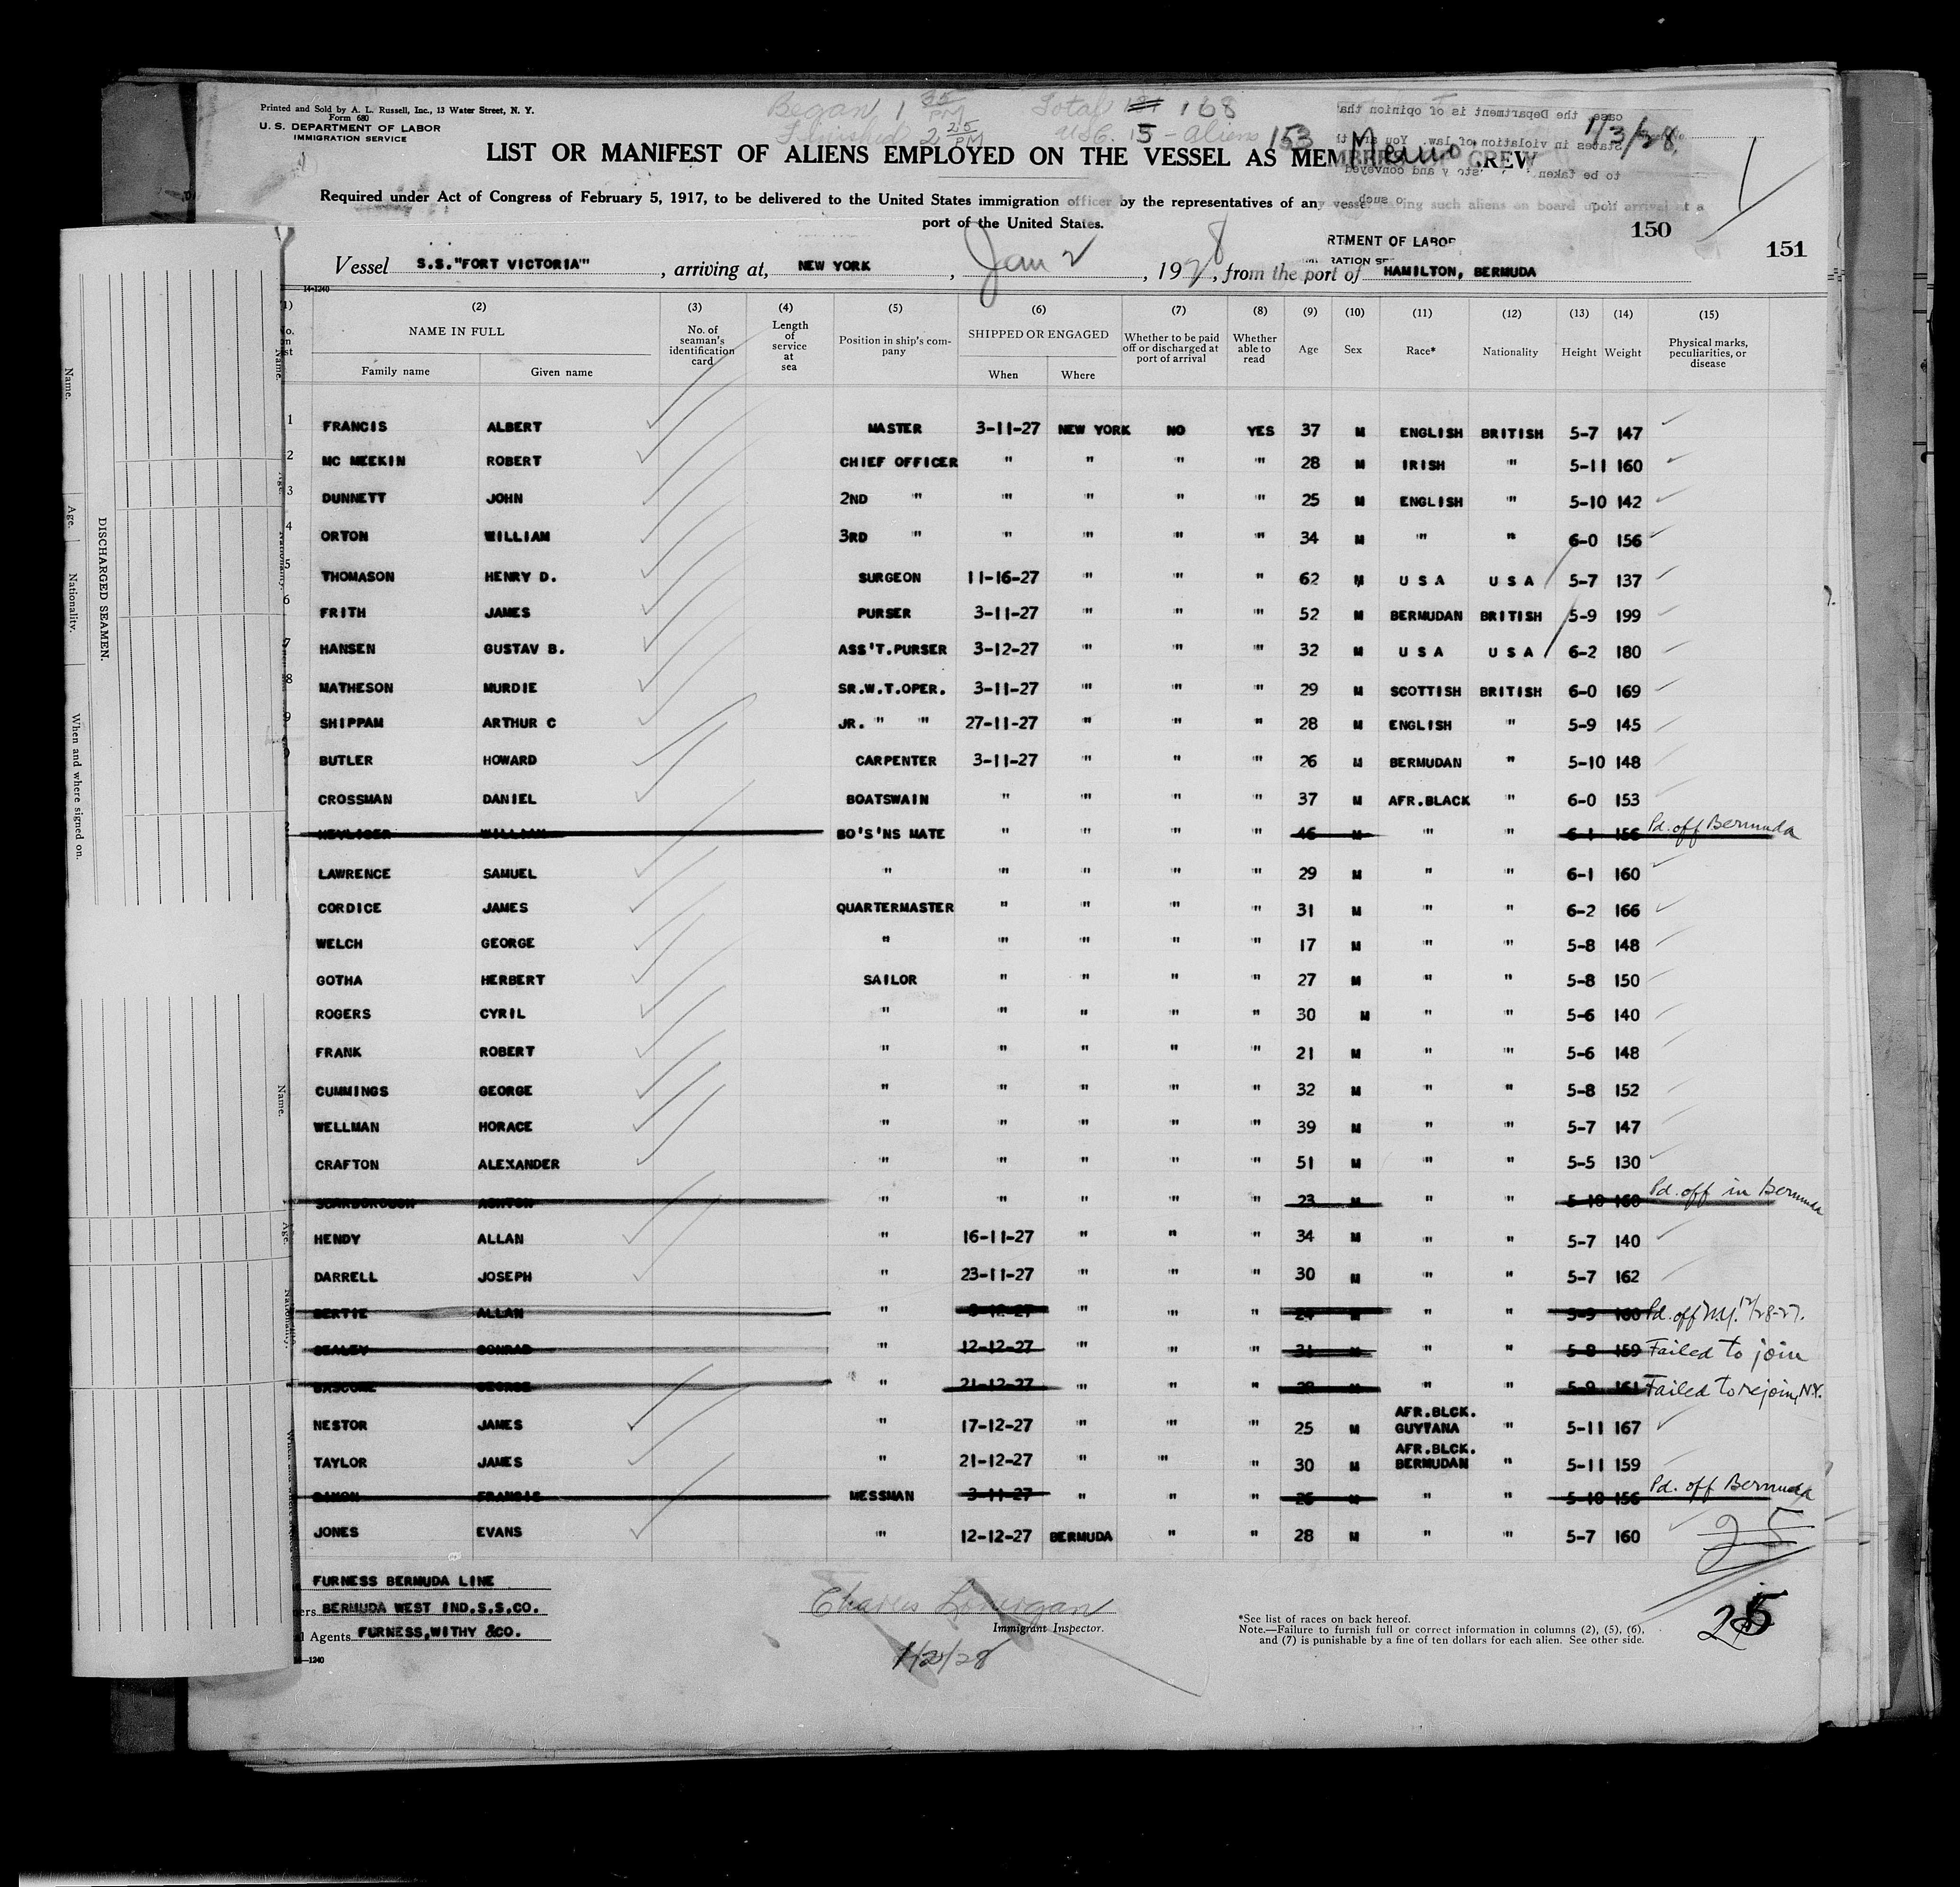 Printed and Sold by A. L. Russell, Inc., 13 Water Street, N. Y.
Form 680
U. S. DEPARTMENT OF LABOR
IMMIGRATION SERVICE
Began 1 35 PM
Finished 2 25 PM
Total 168
USC. 15 - aliens 153
Memo 1/3/28
LIST OR MANIFEST OF ALIENS EMPLOYED ON THE VESSEL AS MEMBERS OF CREW
Required under Act of Congress of February 5, 1917, to be delivered to the United States immigration officer by the representatives of any vessel having such aliens on board upon arrival at a
port of the United States.
150
151
RTMENT OF LABOR
Vessel S.S."FORT VICTORIA" , arriving at, NEW YORK , Jan 2 , 1928 , from the port of HAMILTON, BERMUDA
14-1240
(1) (2) (3) (4) (5) (6) (7) (8) (9) (10) (11) (12) (13) (14) (15)
NAME IN FULL No. of seaman's identification card Length of service at sea Position in ship's company SHIPPED OR ENGAGED Whether to be paid off or discharged at port of arrival Whether able to read Age Sex Race* Nationality Height Weight Physical marks, peculiarities, or disease
Family name Given name When Where
1 FRANCIS ALBERT MASTER 3-11-27 NEW YORK NO YES 37 M ENGLISH BRITISH 5-7 147
2 MC MEEKIN ROBERT CHIEF OFFICER " " " " 28 M IRISH " 5-11 160
3 DUNNETT JOHN 2ND " " " " " 25 M ENGLISH " 5-10 142
4 ORTON WILLIAM 3RD " " " " " 34 M " " 6-0 156
5 THOMASON HENRY D. SURGEON 11-16-27 " " " 62 M U S A U S A 5-7 137
6 FRITH JAMES PURSER 3-11-27 " " " 52 M BERMUDAN BRITISH 5-9 199
7 HANSEN GUSTAV B. ASS'T.PURSER 3-12-27 " " " 32 M U S A U S A 6-2 180
8 MATHESON MURDIE SR.W.T.OPER. 3-11-27 " " " 29 M SCOTTISH BRITISH 6-0 169
9 SHIPPAM ARTHUR C JR. " " 27-11-27 " " " 28 M ENGLISH " 5-9 145
BUTLER HOWARD CARPENTER 3-11-27 " " " 26 M BERMUDAN " 5-10 148
CROSSMAN DANIEL BOATSWAIN " " " " 37 M AFR.BLACK " 6-0 153
HEYLIGER WILLIAM BO'S'NS MATE " " " " 46 M " " 6-1 156 Pd. off Bermuda
LAWRENCE SAMUEL " " " " " 29 M " " 6-1 160
CORDICE JAMES QUARTERMASTER " " " " 31 M " " 6-2 166
WELCH GEORGE " " " " " 17 M " " 5-8 148
GOTHA HERBERT SAILOR " " " " 27 M " " 5-8 150
ROGERS CYRIL " " " " " 30 M " " 5-6 140
FRANK ROBERT " " " " " 21 M " " 5-6 148
CUMMINGS GEORGE " " " " " 32 M " " 5-8 152
WELLMAN HORACE " " " " " 39 M " " 5-7 147
CRAFTON ALEXANDER " " " " " 51 M " " 5-5 130
SCARBOROUGH ASHTON " " " " " 23 M " " 5-10 160 Pd. off in Bermuda
HENDY ALLAN " 16-11-27 " " " 34 M " " 5-7 140
DARRELL JOSEPH " 23-11-27 " " " 30 M " " 5-7 162
BERTIE ALLAN " 3-12-27 " " " 24 M " " 5-9 160 Pd. off N.Y. 12/28-27.
SEALEY CONRAD " 12-12-27 " " " 31 M " " 5-8 159 Failed to join
BASCOME GEORGE " 21-12-27 " " " M " " 5-9 161 Failed to rejoin, N.Y.
NESTOR JAMES " 17-12-27 " " " 25 M AFR.BLCK. GUYTANA " 5-11 167
TAYLOR JAMES " 21-12-27 " " " 30 M AFR.BLCK. BERMUDAN " 5-11 159
FRANCIS MESSMAN 3-11-27 " " " 26 M " " 5-10 156 Pd. off Bermuda
JONES EVANS " 12-12-27 BERMUDA " " 28 M " " 5-7 160
25
FURNESS BERMUDA LINE
BERMUDA WEST IND.S.S.CO.
Agents FURNESS,WITHY &CO.
Charles Lonergan
Immigrant Inspector.
1/2/28
*See list of races on back hereof.
Note.—Failure to furnish full or correct information in columns (2), (5), (6),
and (7) is punishable by a fine of ten dollars for each alien. See other side.
25
—1240
DISCHARGED SEAMEN.
Name.
Age.
Nationality.
When and where signed on.
Name.